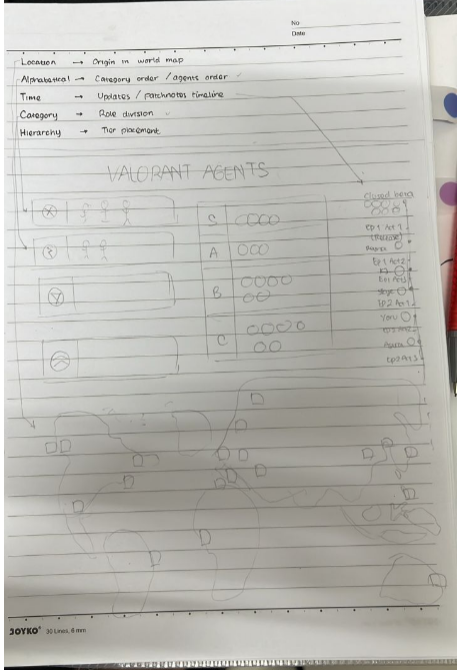 No
Date
Location → Origin in world map
Alphabetical → Category order / agents order
Time → Updates / patchnotes timeline
Category → Role division
Hierarchy → Tier placement
VALORANT AGENTS
S
A
B
C
Closed beta
Ep 1 Act 1
(Release)
Ep 1 Act 2
Ep 1 Act 3
Skye
Ep 2 Act 1
Yoru
Ep 2 Act 2
Astra
Ep 2 Act 3
JOYKO® 30 Lines, 6 mm